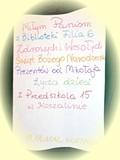 Miłym Paniom
z Biblioteki Filia 6
Zdrowych Wesołych
Świąt Bożego Narodzenia
Prezentów od Mikołaja
życzą dzieci
z Przedszkola 15
w Koszalinie